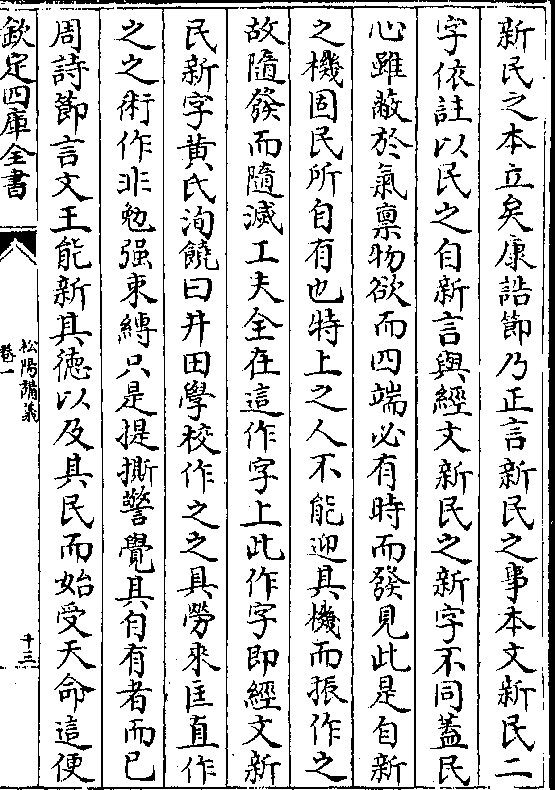 新民之本立矣康誥節乃正言新民之事本文新民二
字依註以民之自新言與經文新民之新字不同蓋民
心雖蔽於氣禀物欲而四端必有時而發見此是自新
之機固民所自有也特上之人不能迎其機而振作之
故隨發而隨滅工夫全在這作字上此作字即經文新
民新字黄氏洵饒曰井田學校作之之具勞來匡直作
之之術作非勉强束縛只是提撕警覺其自有者而已
周詩節言文王能新其德以及其民而始受天命這便
欽定四庫全書
松陽講義
卷一
十三